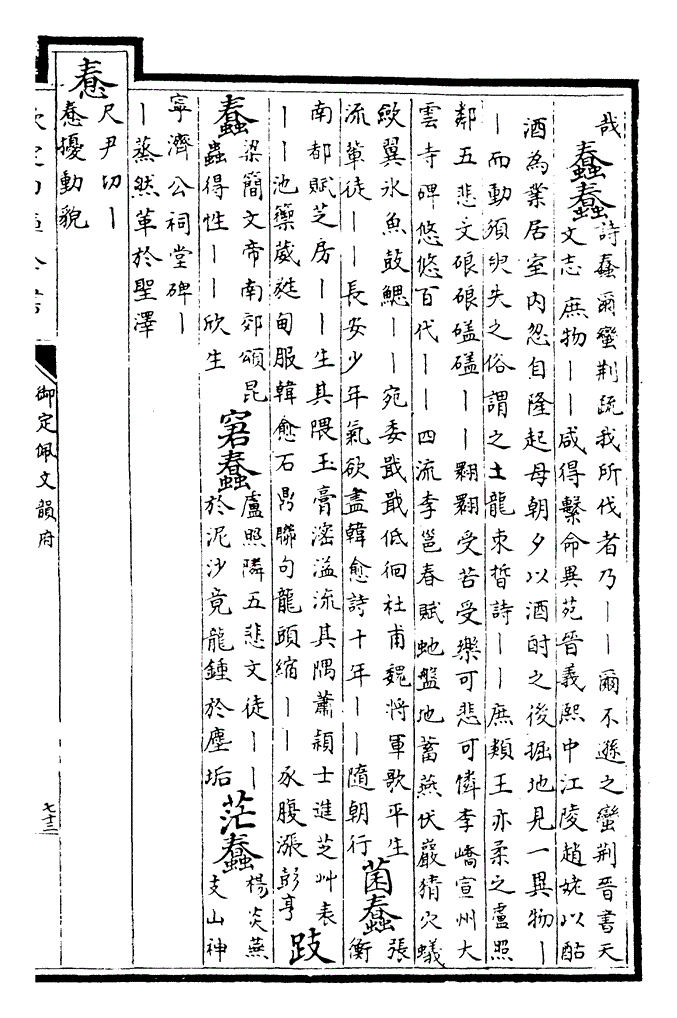 哉
蠢蠢
詩蠢爾蠻荆疏我所伐者乃——爾不遜之蠻荆晉書天
文志庶物——咸得繫命異苑晉義熙中江陵趙姥以酤
酒為業居室内忽自隆起母朝夕以酒酹之後掘地見一異物—
—而動須臾失之俗謂之土龍束晳詩——庶類王亦柔之盧照
鄰五悲文硠硠磕磕——翾翾受苦受樂可悲可憐李嶠宣州大
雲寺碑悠悠百代——四流李邕春賦虵盤地蓄燕伏巖猜穴蟻
歘翼氷魚鼓鰓——宛委戢戢低徊杜甫魏將軍歌平生
流輩徒——長安少年氣欲盡韓愈詩十年——隨朝行
菌蠢
張
衡
南都賦芝房——生其隈玉膏滵溢流其隅蕭潁士進芝艸表
——池籞葳蕤甸服韓愈石鼎聯句龍頭縮——豕腹漲彭亨
跂
蠢
梁簡文帝南郊頌昆
蟲得性——欣生
窘蠢
盧照隣五悲文徒——
於泥沙竟龍鍾於塵垢
茫蠢
楊炎燕
支山神
寧濟公祠堂碑—
—蒸然革於聖澤
惷
尺尹切—
惷擾動貌
御定佩文韻府
七十三